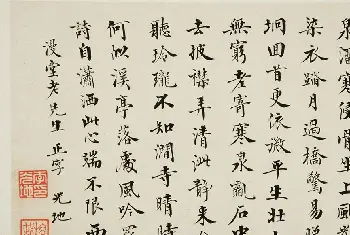 泉酒寒侵骨生
染衣踏月過橋驚易
坰回首更依微平生壯
無窮老寄寒泉亂石中
去披襟弄清泚静来
聽玲瓏不知澗寺晴時
何似溪亭落處風吟
詩自瀟洒此心端不限西
漫堂老先生正字
光地